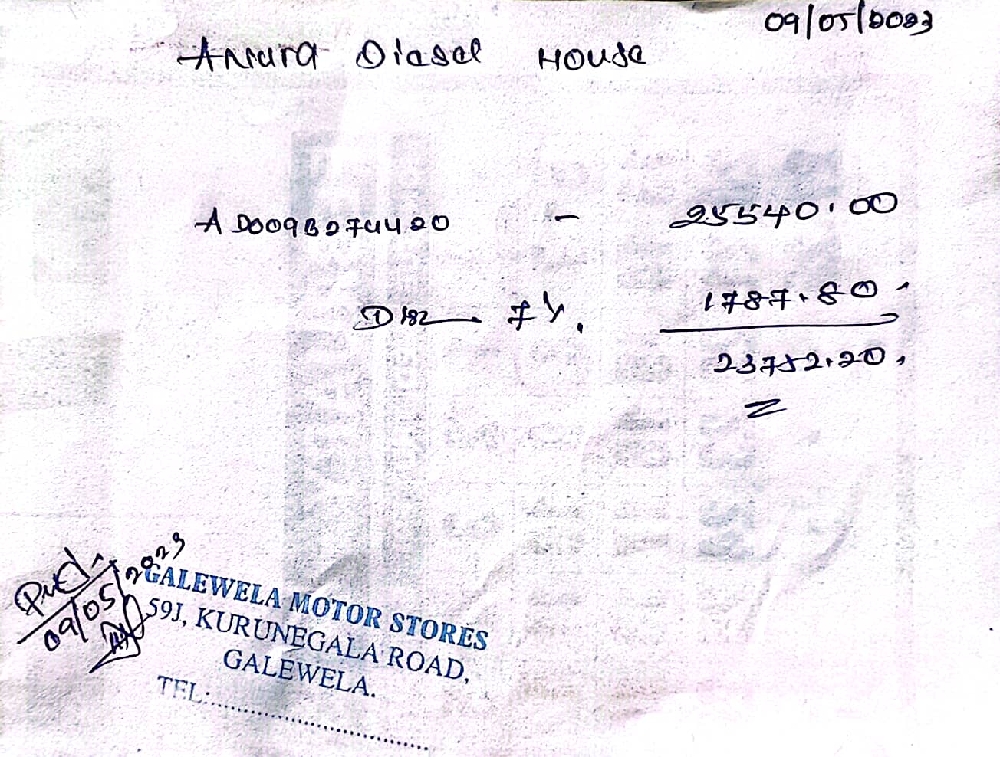 09/05/2023
Anura Diesel House
AD0093274420 - 25540.00
Dis 7%. 1787.80
23752.20
Paid
09/05/2023
GALEWELA MOTOR STORES
59J, KURUNEGALA ROAD,
GALEWELA.
TEL:..............................